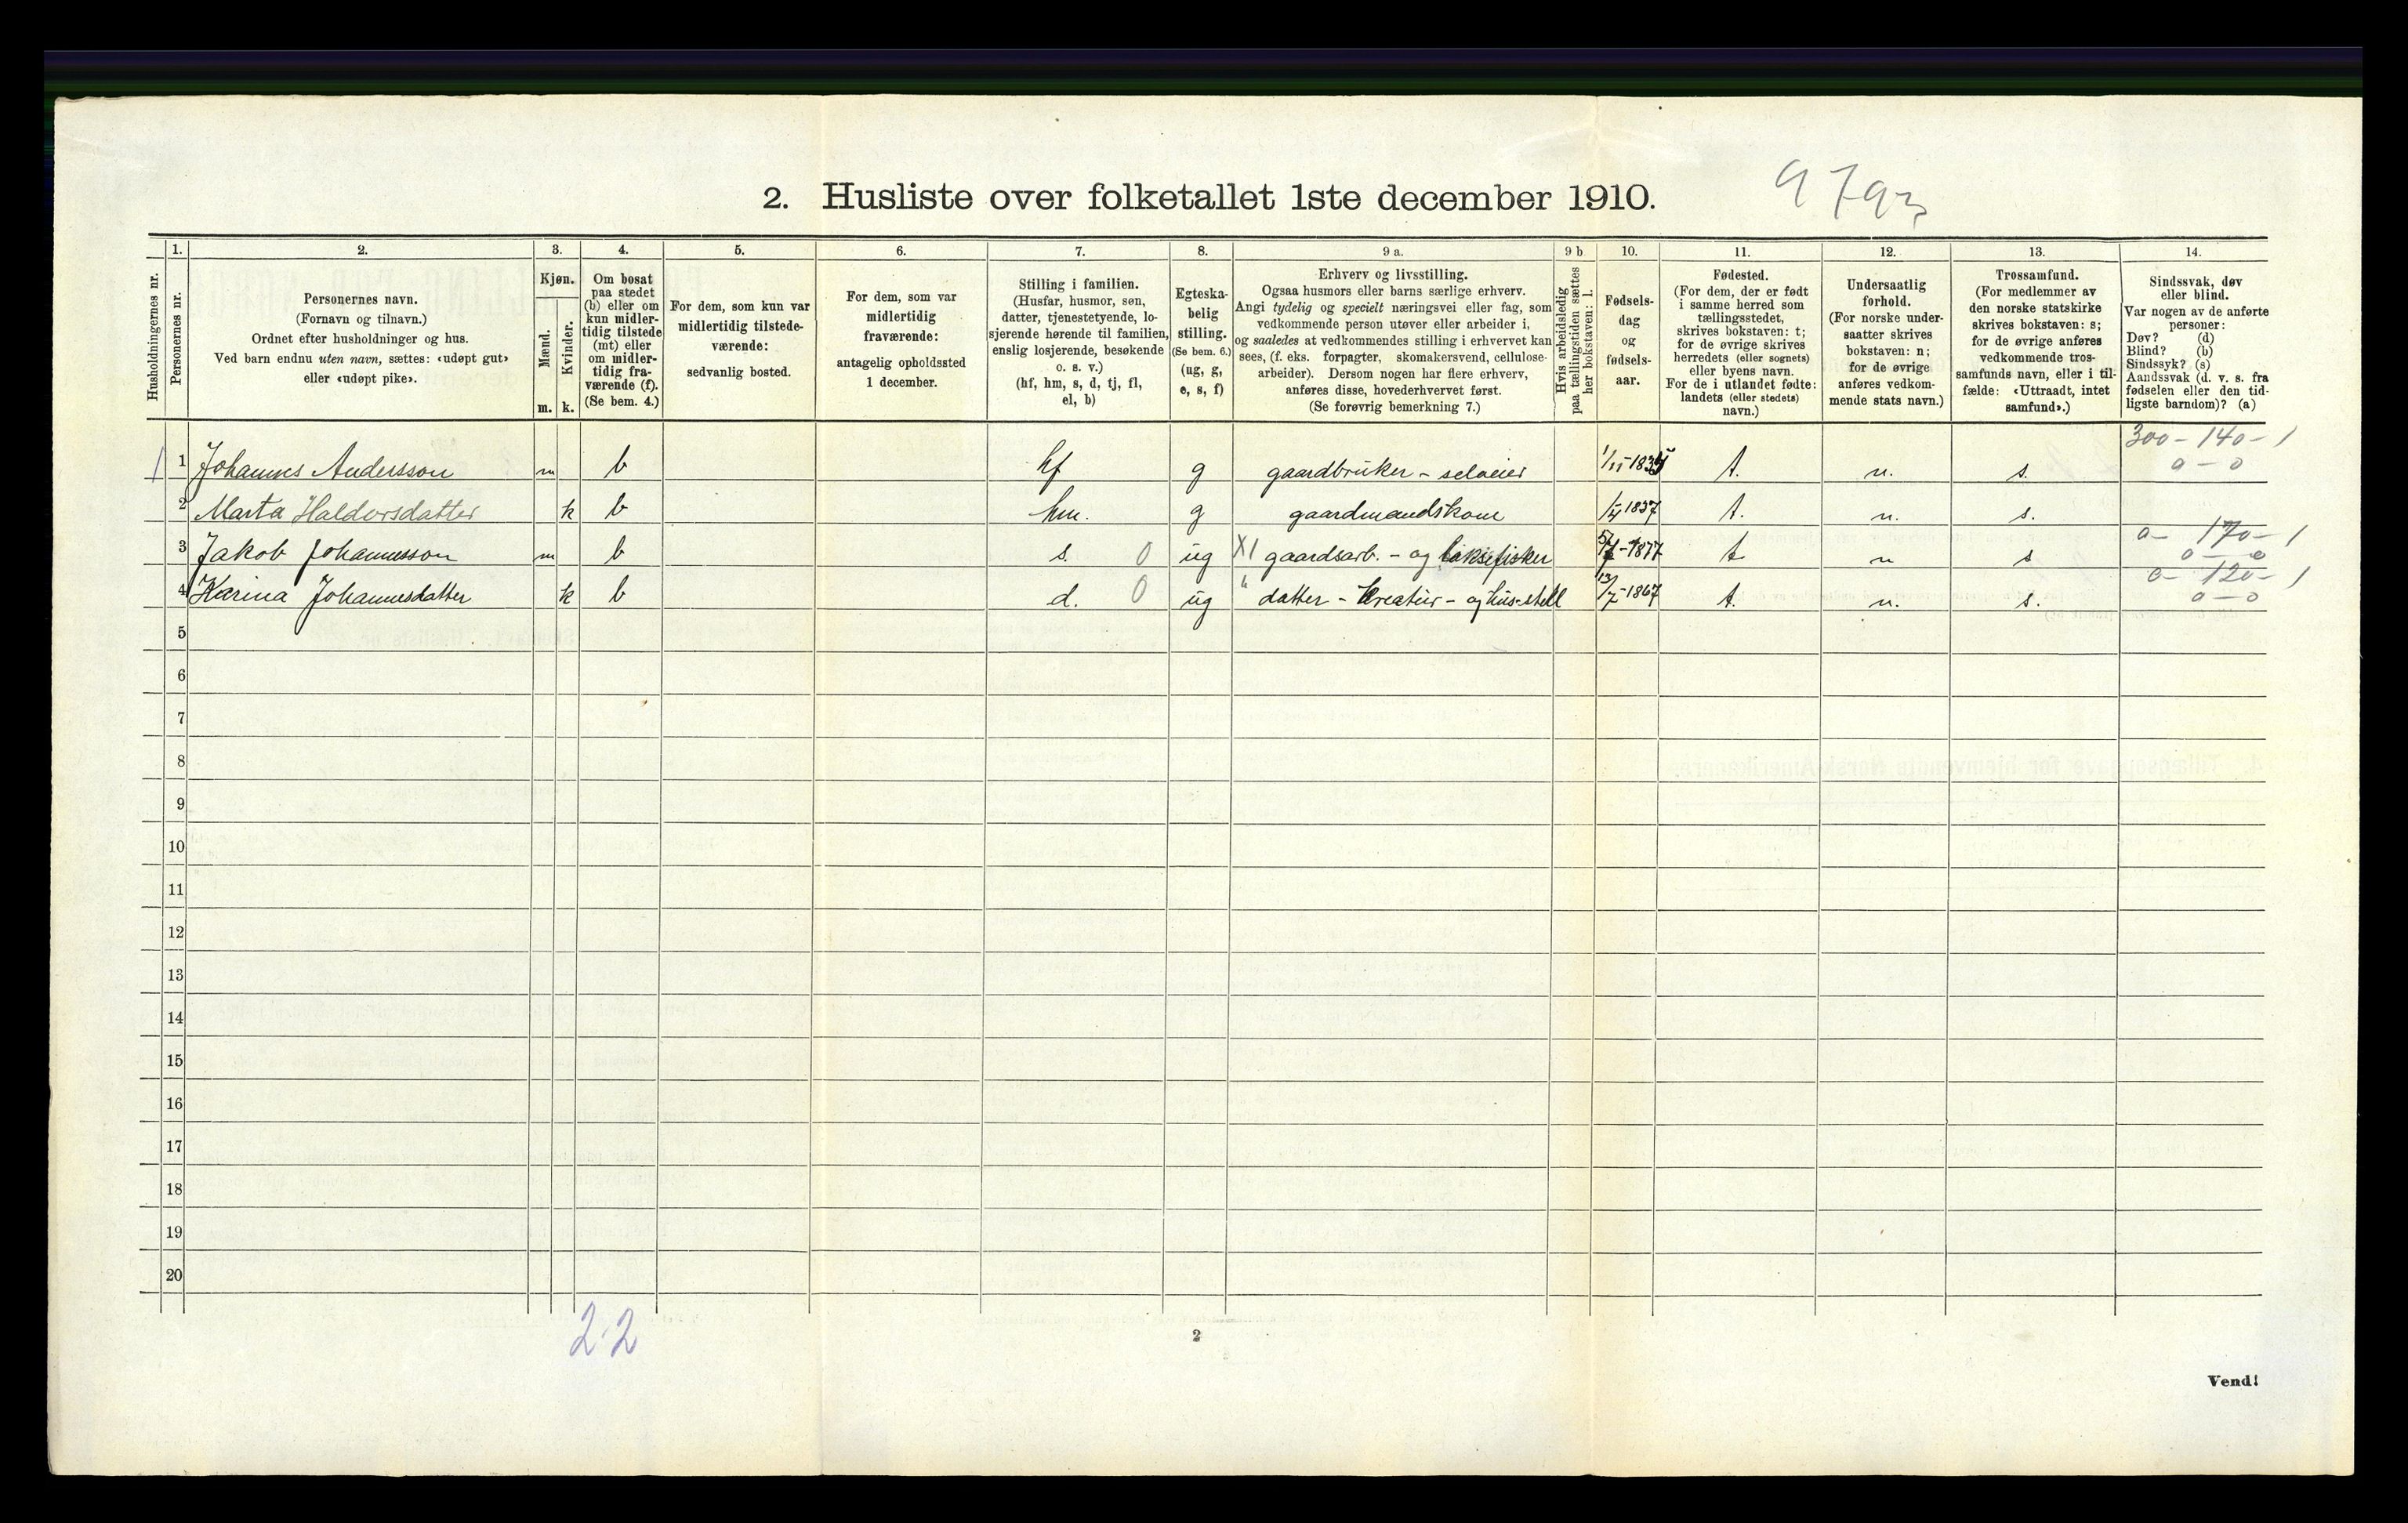 2. Husliste over folketallet 1ste december 1910.
9793
Husholdningernes nr.
1.
Personernes nr.
2.
Personernes navn.
(Fornavn og tilnavn.)
Ordnet efter husholdninger og hus.
Ved barn endnu uten navn, sættes: «udøpt gut»
eller «udøpt pike».
3.
Kjøn.
Mænd.
Kvinder.
m. k.
4.
Om bosat
paa stedet
(b) eller om
kun midler-
tidig tilstede
(mt) eller
om midler-
tidig fra-
værende (f).
(Se bem. 4.)
5.
For dem, som kun var
midlertidig tilstede-
værende:
sedvanlig bosted.
6.
For dem, som var
midlertidig
fraværende:
antagelig opholdssted
1 december.
7.
Stilling i familien.
(Husfar, husmor, søn,
datter, tjenestetyende, lo-
sjerende hørende til familien,
enslig losjerende, besøkende
o. s. v.)
(hf, hm, s, d, tj, fl,
el, b)
8.
Egteska-
belig
stilling.
(Se bem. 6.)
(ug, g,
e, s, f)
9 a.
Erhverv og livsstilling.
Ogsaa husmors eller barns særlige erhverv.
Angi tydelig og specielt næringsvei eller fag, som
vedkommende person utøver eller arbeider i,
og saaledes at vedkommendes stilling i erhvervet kan
sees, (f. eks. forpagter, skomakersvend, cellulose-
arbeider). Dersom nogen har flere erhverv,
anføres disse, hovederhvervet først.
(Se forøvrig bemerkning 7.)
9 b
Hvis arbeidsledig
paa tællingstiden sættes
her bokstaven: l.
10.
Fødsels-
dag
og
fødsels-
aar.
11.
Fødested.
(For dem, der er født
i samme herred som
tællingsstedet,
skrives bokstaven: t;
for de øvrige skrives
herredets (eller sognets)
eller byens navn.
For de i utlandet fødte:
landets (eller stedets)
navn.)
12.
Undersaatlig
forhold.
(For norske under-
saatter skrives
bokstaven: n;
for de øvrige
anføres vedkom-
mende stats navn.)
13.
Trossamfund.
(For medlemmer av
den norske statskirke
skrives bokstaven: s;
for de øvrige anføres
vedkommende tros-
samfunds navn, eller i til-
fælde: «Uttraadt, intet
samfund».)
14.
Sindssvak, døv
eller blind.
Var nogen av de anførte
personer:
Døv? (d)
Blind? (b)
Sindssyk? (s)
Aandssvak (d. v. s. fra
fødselen eller den tid-
ligste barndom)? (a)
300 - 140 - 1
1 1 Johannes Andersson m b hf g gaardbruker - selveier 1/11-1835 t. n. s. 0 - 0
2 Marta Haldorsdatter k b hm. g gaardmandskone 1/4 1837 t. n. s.
0 - 170 - 1
3 Jakob Johannesson m b s. 0 ug X1 gaardsarb. - og laksefisker -1877 t n s 0 - 0
0 - 120 - 1
4 Karina Johannesdatter k b d. 0 ug " datter - kreatur - og hus-stell 13/7-1867 t. n. s. 0 - 0
5
6
7
8
9
10
11
12
13
14
15
16
17
18
19
20
2.2
2
Vend!